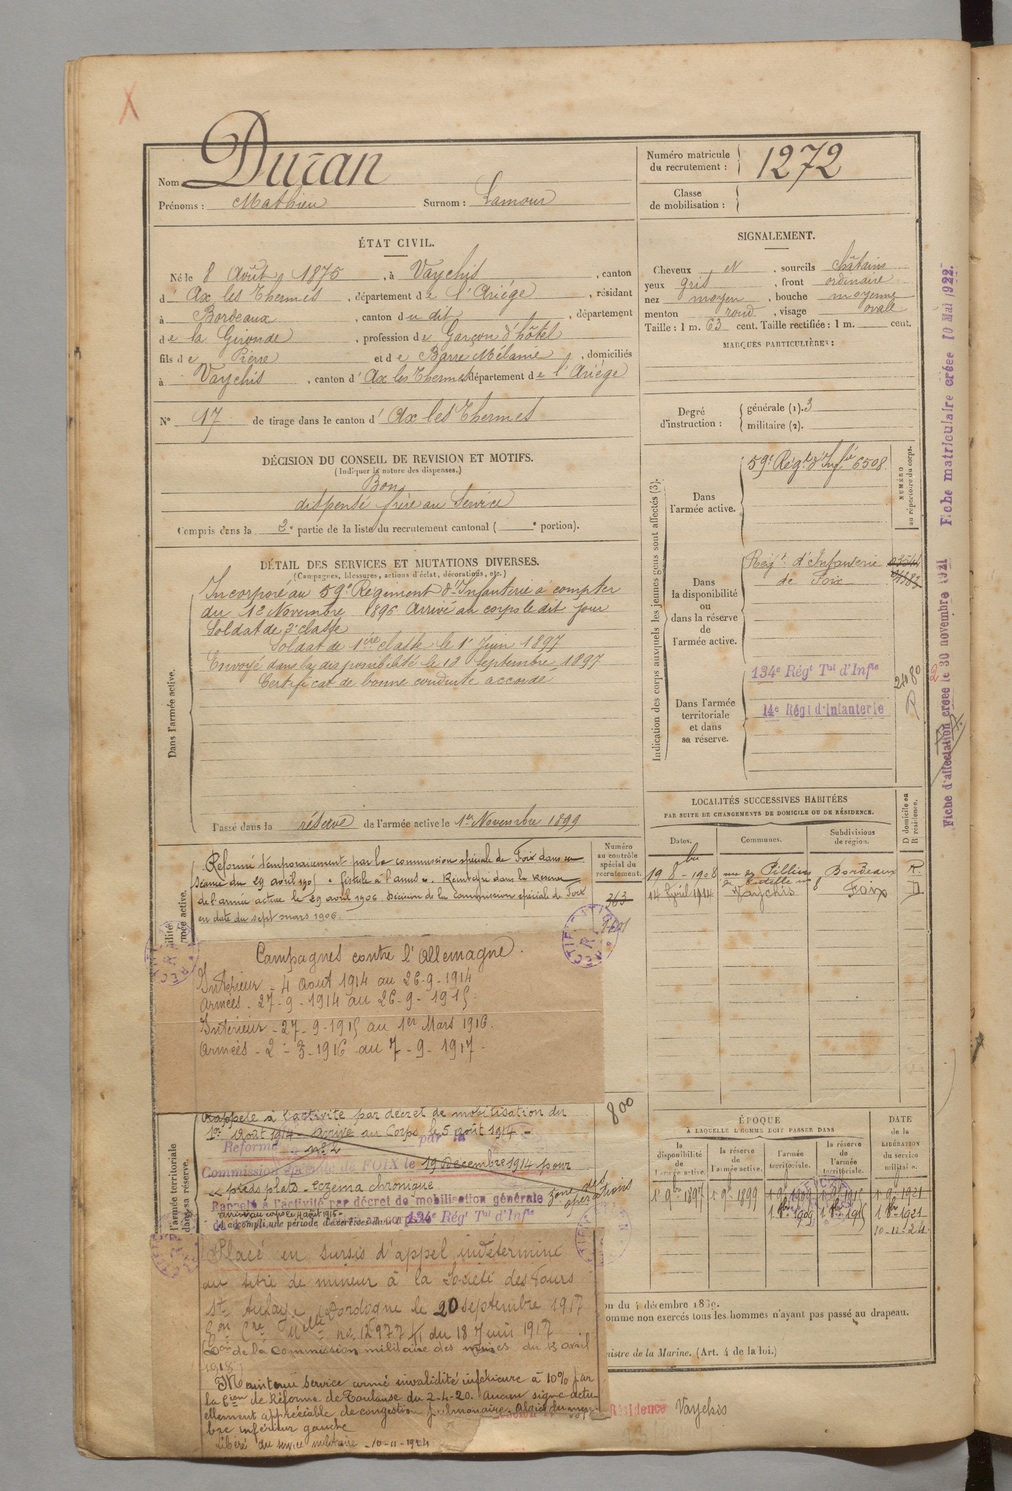 X
Nom Duran
Prénoms : Mathieu Surnom : Lamour
Numéro matricule
du recrutement : 1272
Classe
de mobilisation :
ÉTAT CIVIL.
Né le 8 Août 1875, à Vaychis, canton
d' Ax les Thermes, département de l'Ariége, résidant
à Bordeaux, canton du dit, département
de la Gironde, profession de Garçon d'hôtel
fils de Pierre et de Barre Mélanie, domiciliés
à Vaychis, canton d' Ax les Thermes département de l'Ariége
N° 17 de tirage dans le canton d' Ax les Thermes
SIGNALEMENT.
Cheveux N, sourcils châtains
yeux gris, front ordinaire
nez moyen, bouche moyenne
menton rond, visage ovale
Taille : 1 m. 63 cent. Taille rectifiée : 1 m. cent.
MARQUES PARTICULIÈRES :
Degré
d'instruction :
générale (1). 3
militaire (2).
DÉCISION DU CONSEIL DE REVISION ET MOTIFS.
(Indiquer la nature des dispenses.)
Bon
dispensé frère au Service
Compris dans la 2e partie de la liste du recrutement cantonal ( e portion).
DÉTAIL DES SERVICES ET MUTATIONS DIVERSES.
(Campagnes, blessures, actions d'éclat, décorations, etc.)
Dans l'armée active.
Incorporé au 59e Régiment d'Infanterie à compter
du 12 Novembre 1896 Arrivé au corps le dit jour
Soldat de 2e classe
Soldat de 1ère classe le 1r Juin 1897
Envoyé dans la disponibilité le 13 Septembre 1897
Certificat de bonne conduite accordé
Passé dans la réserve de l'armée active le 1er Novembre 1899
Indication des corps auxquels les jeunes gens sont affectés (3).
Dans
l'armée active.
59e Régt d'Infie 6508
NUMÉRO
au répertoire du corps.
Dans
la disponibilité
ou
dans la réserve
de
l'armée active.
Régt d'Infanterie
de Foix
Dans l'armée
territoriale
et dans
sa réserve.
134e Régt Tal d'Infie
14e Régt d'Infanterie
Fiche d'affectation créée le 30 novembre 1921
Fiche matriculaire créée 10 Mai 1922.
LOCALITÉS SUCCESSIVES HABITÉES
PAR SUITE DE CHANGEMENTS DE DOMICILE OU DE RÉSIDENCE.
Dates.
Communes.
Subdivisions
de région.
D domicile ou
R résidence.
19 8bre 1908 Bordeaux R
14 Avril 1914 Vaychis Foix D
Numéro
au contrôle
spécial du
recrutement.
363
Réformé temporairement par la commission spéciale de Foix dans sa
séance du 29 avril 1905 - fistule à l'anus - Réintégré dans la réserve
de l'armée active le 29 avril 1906 Décision de la Commission spéciale de Foix
en date du sept mars 1906
Campagnes contre l'Allemagne.
Intérieur - 4 août 1914 au 26-9-1914
Armées - 27-9-1914 au 26-9-1915
Intérieur - 27-9-1915 au 1er Mars 1916.
Armées - 2-3-1916 au 7-9-1917 -
800
l'armée territoriale
dans sa réserve.
Rappelé à l'activité par décret de mobilisation du
1er Août 1914 - Arrivé au Corps le 5 août 1914 -
Réformé n° 2 par la
Commission spéciale de FOIX le 19 Décembre 1914 pour
« pieds plats - eczema chronique
Rappelé à l'activité par décret de mobilisation générale
zone des opérations
a accompli une période d'exercices dans le 134e Régt Tal d'Infie
Placé en sursis d'appel indéterminé
au titre de mineur à la Société des Fours
St Aulaye, Dordogne le 20 septembre 1917
n° 12977 K du 18 Juin 1917
de la Commission militaire des mines du 13 avril
1918
Maintenu service armé invalidité inférieure à 10% par
la 6e Con de Réforme de Toulouse du 2-4-20. Aucun signe actu
ellement appréciable de congestion pulmonaire. Algies du mem
bre inférieur gauche
Libéré du service militaire - 10-11-1924
ÉPOQUE
À LAQUELLE L'HOMME DOIT PASSER DANS
DATE
de la
LIBÉRATION
DU SERVICE
militaire.
la
disponibilité
de
l'armée active.
la réserve
de
l'armée active.
l'armée
territoriale.
la réserve
de
l'armée
territoriale.
1r 9bre 1897 1r 9bre 1899 1r 9bre 1909 1r 9bre 1915 1r 9bre 1921
1r 8bre 1909 1r 8bre 1915 1r 8bre 1921
10-11-24
on du 4 décembre 1889.
omme non exercés tous les hommes n'ayant pas passé au drapeau.
nistre de la Marine. (Art. 4 de la loi.)
Résidence Vaychis